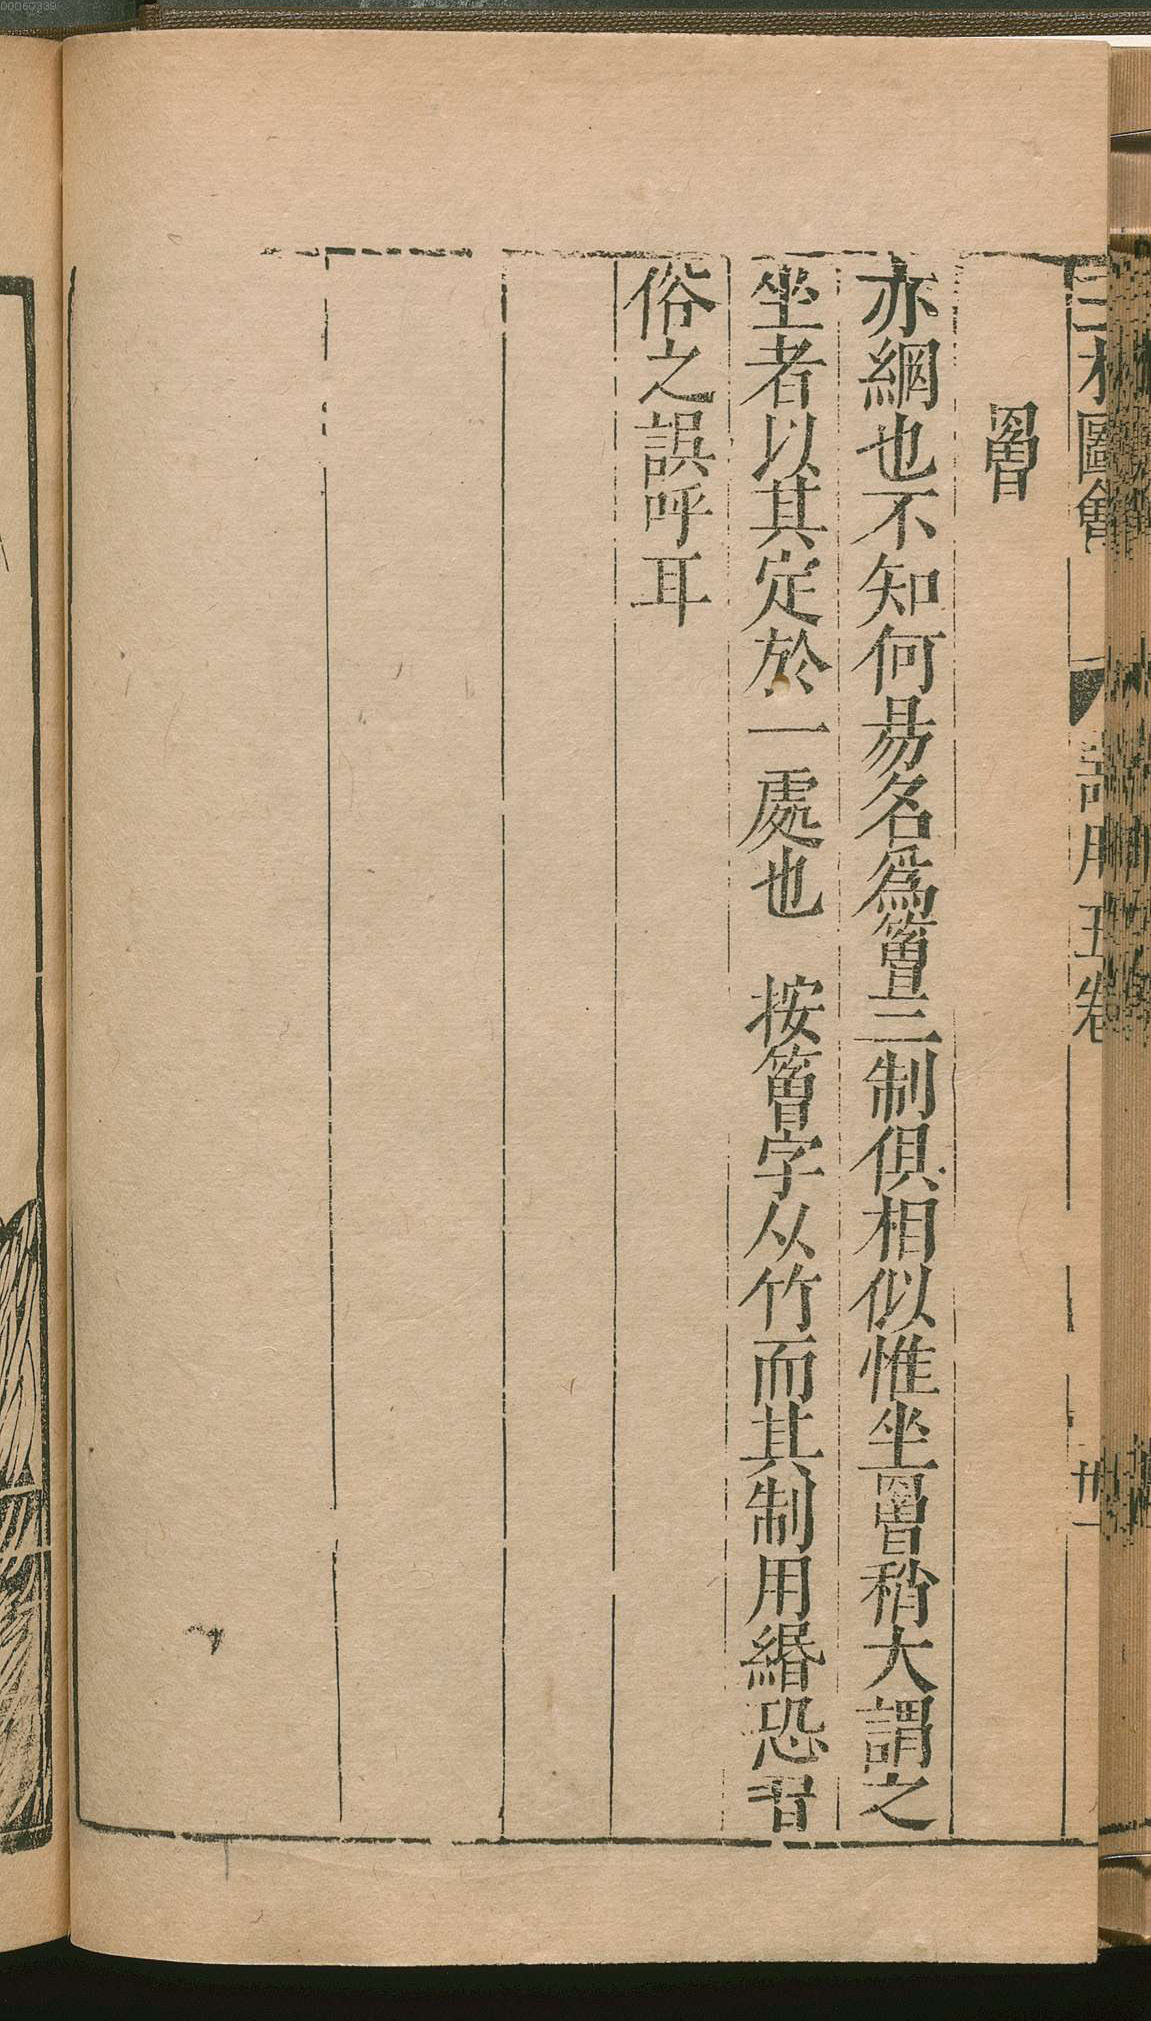 00060339
三才圖會 器用五卷 卅一
罾
亦網也不知何昜名爲䉕三制俱相似惟坐罾稍大謂之
坐者以其定於一處也 按䉕字从竹而其制用緡恐習
俗之誤呼耳